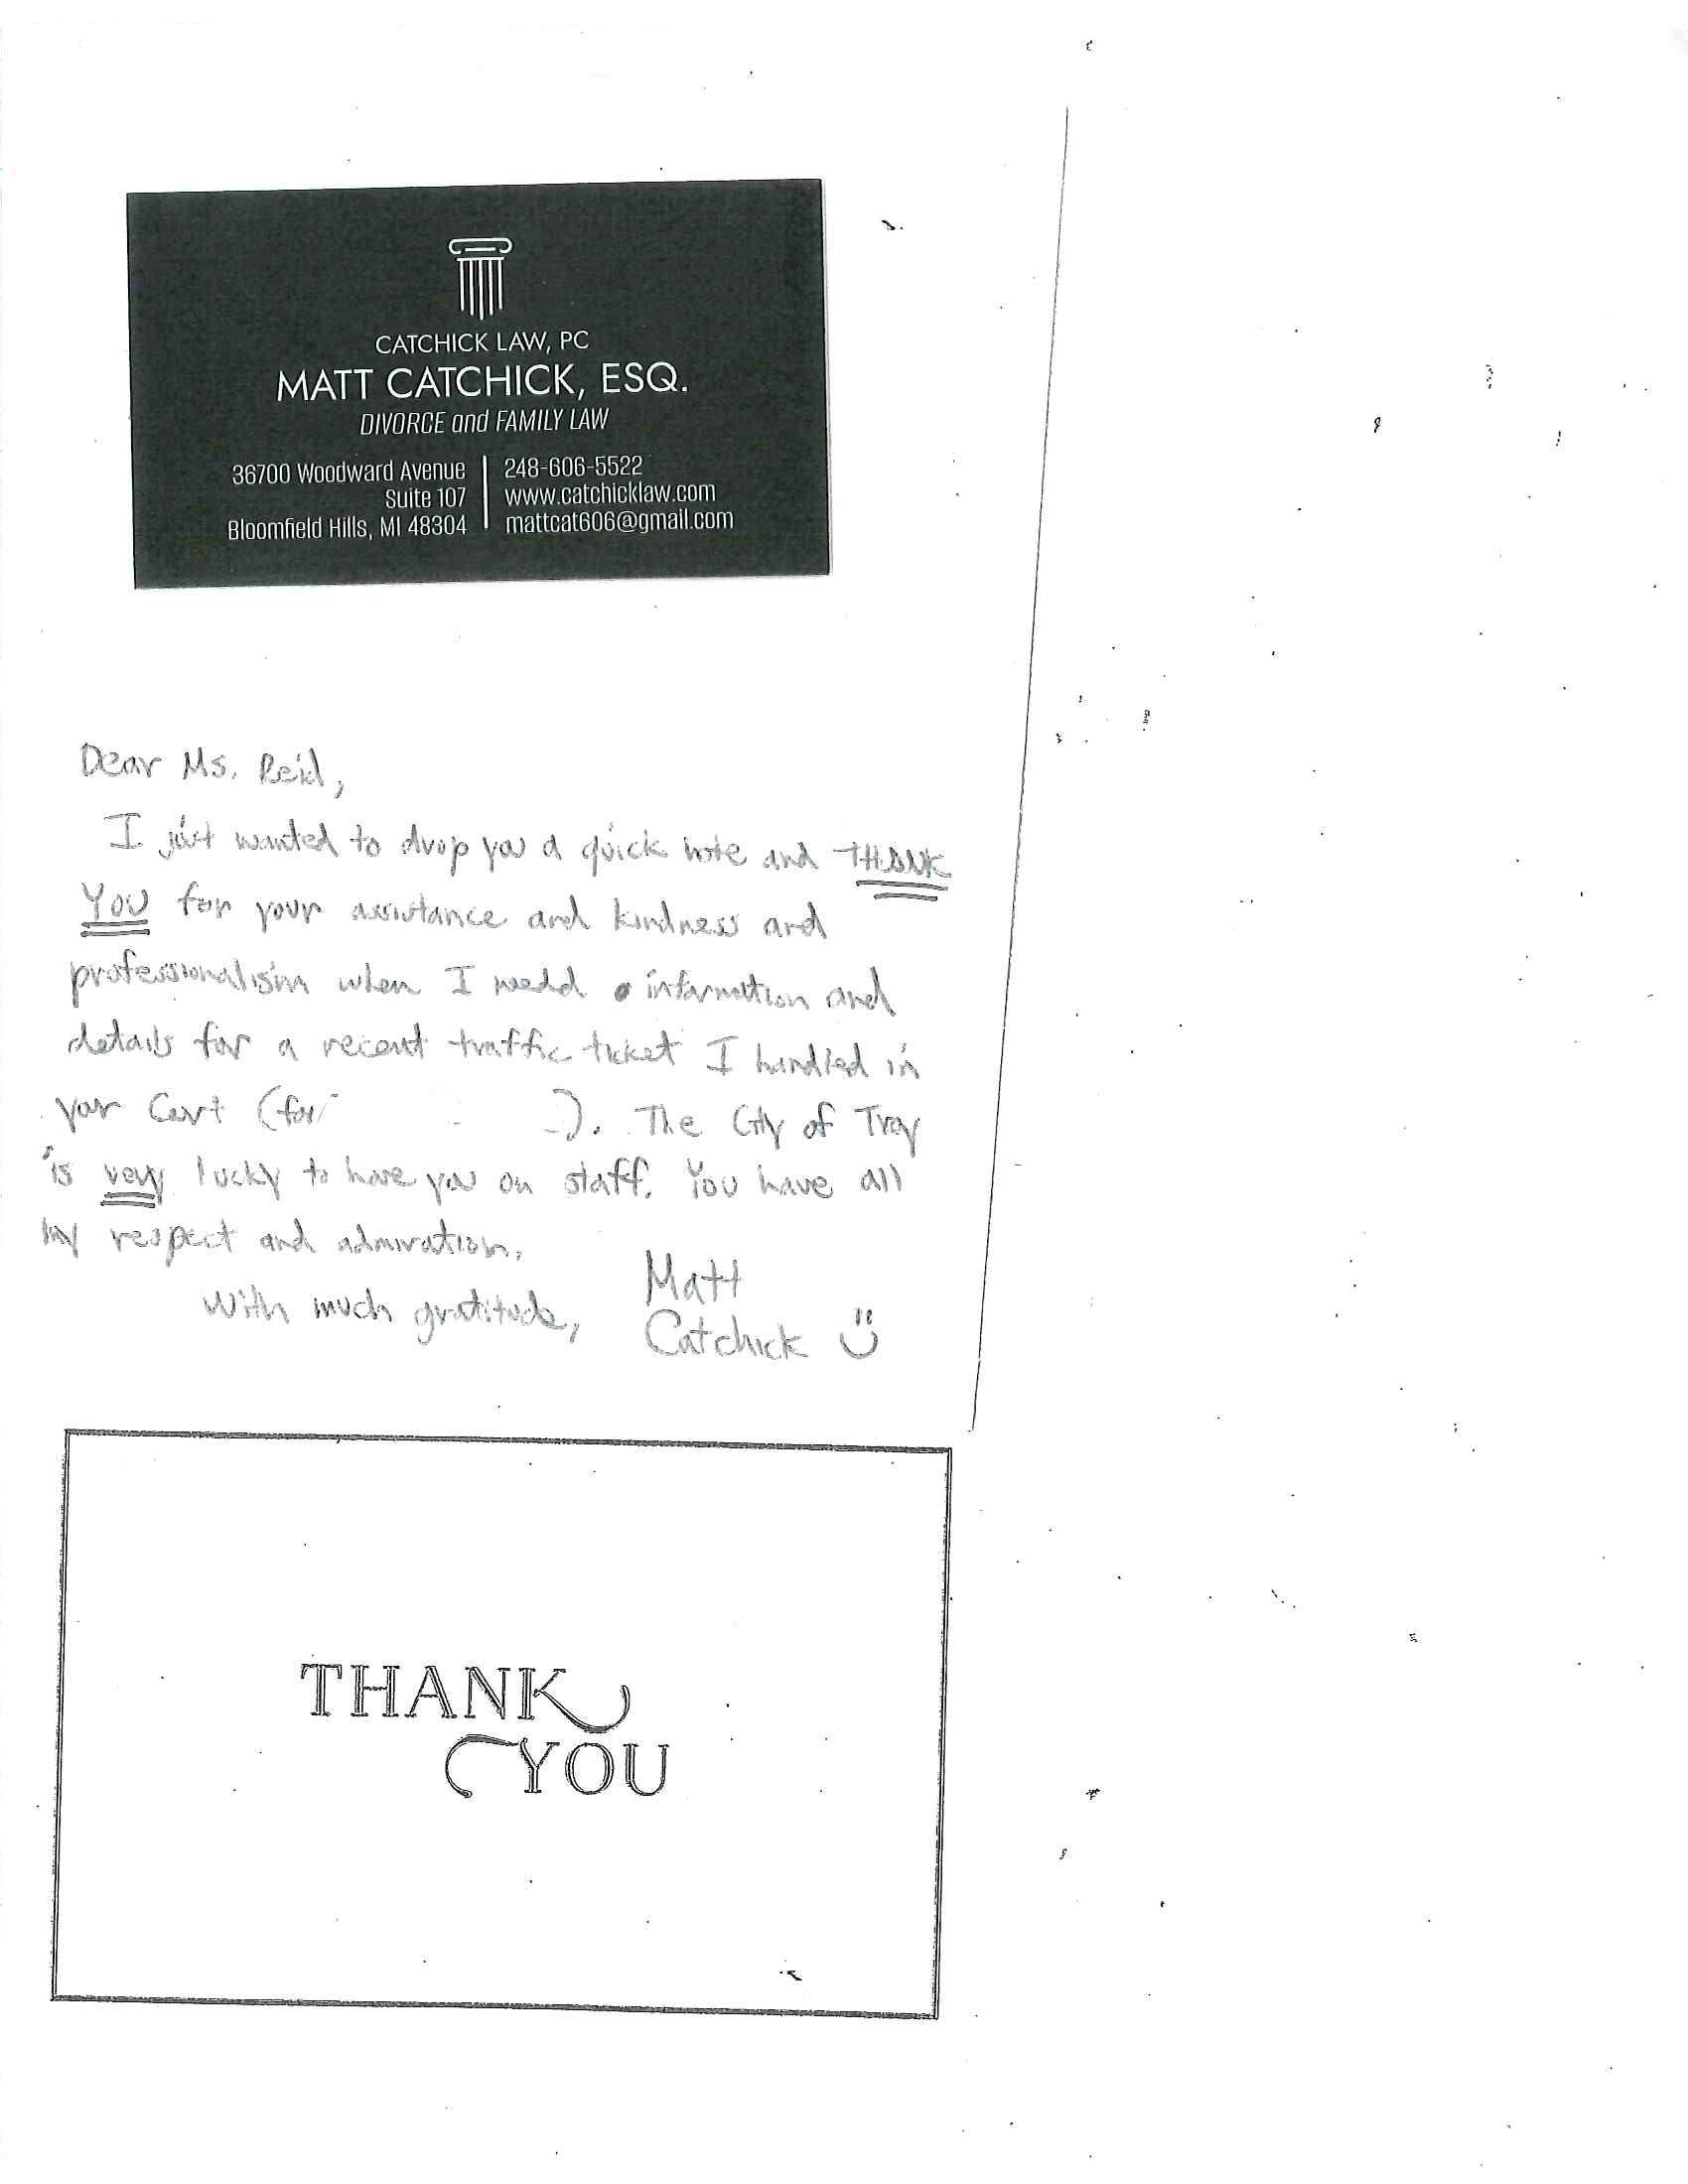 CATCHICK LAW, PC
MATT CATCHICK, ESQ.
DIVORCE and FAMILY LAW
36700 Woodward Avenue
Suite 107
Bloomfield Hills, MI 48304
248-606-5522
www.catchicklaw.com
mattcat606@gmail.com
Dear Ms. Reid,
I just wanted to drop you a quick note and THANK
YOU for your assistance and kindness and
professionalism when I needd information and
details for a recent traffic ticket I handled in
your Court (for ). The City of Troy
is very lucky to have you on staff. You have all
my respect and admiration.
With much gratitude,
Matt
Catchick
THANK
YOU